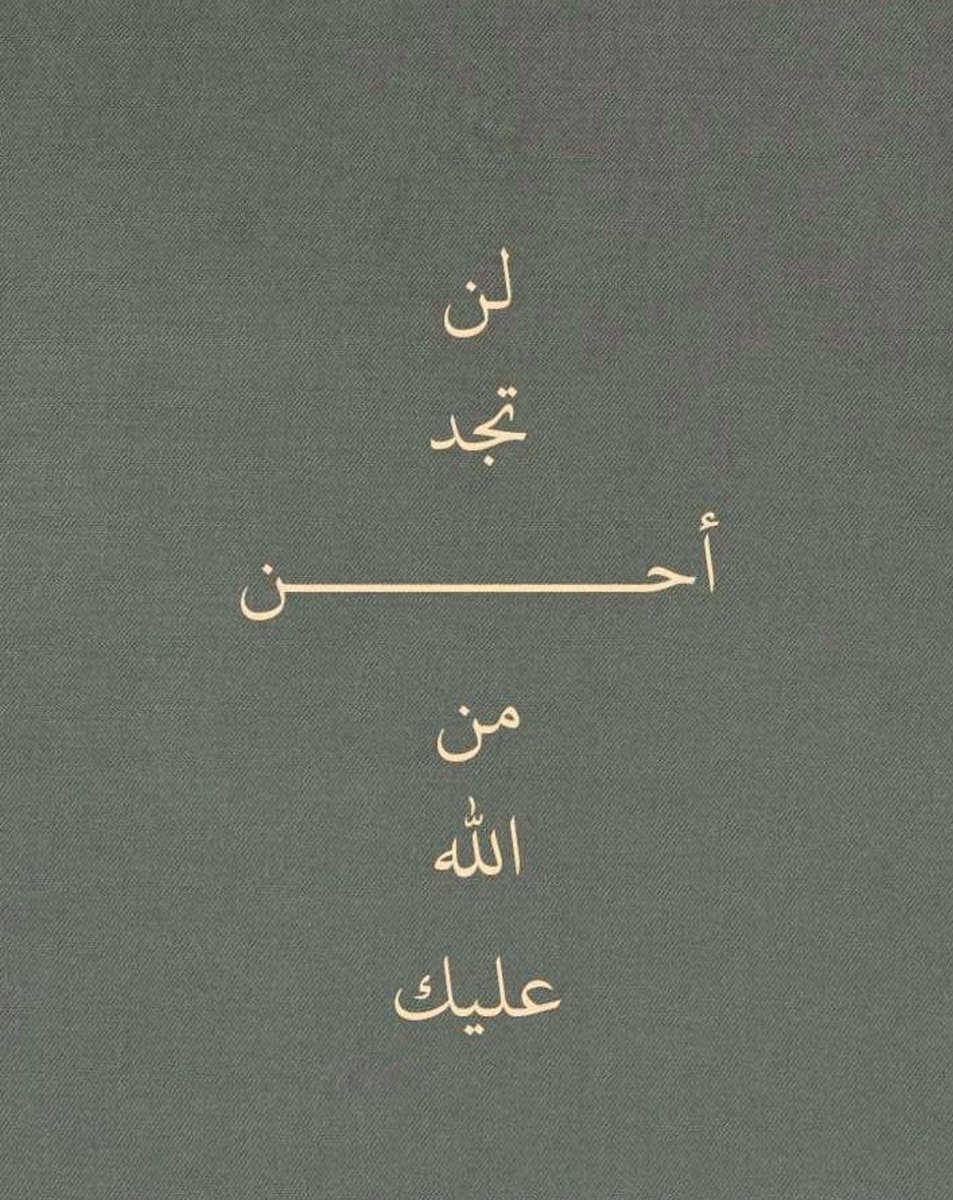 لن
تجد
أحـــــــــــــــــن
من
الله
عليك